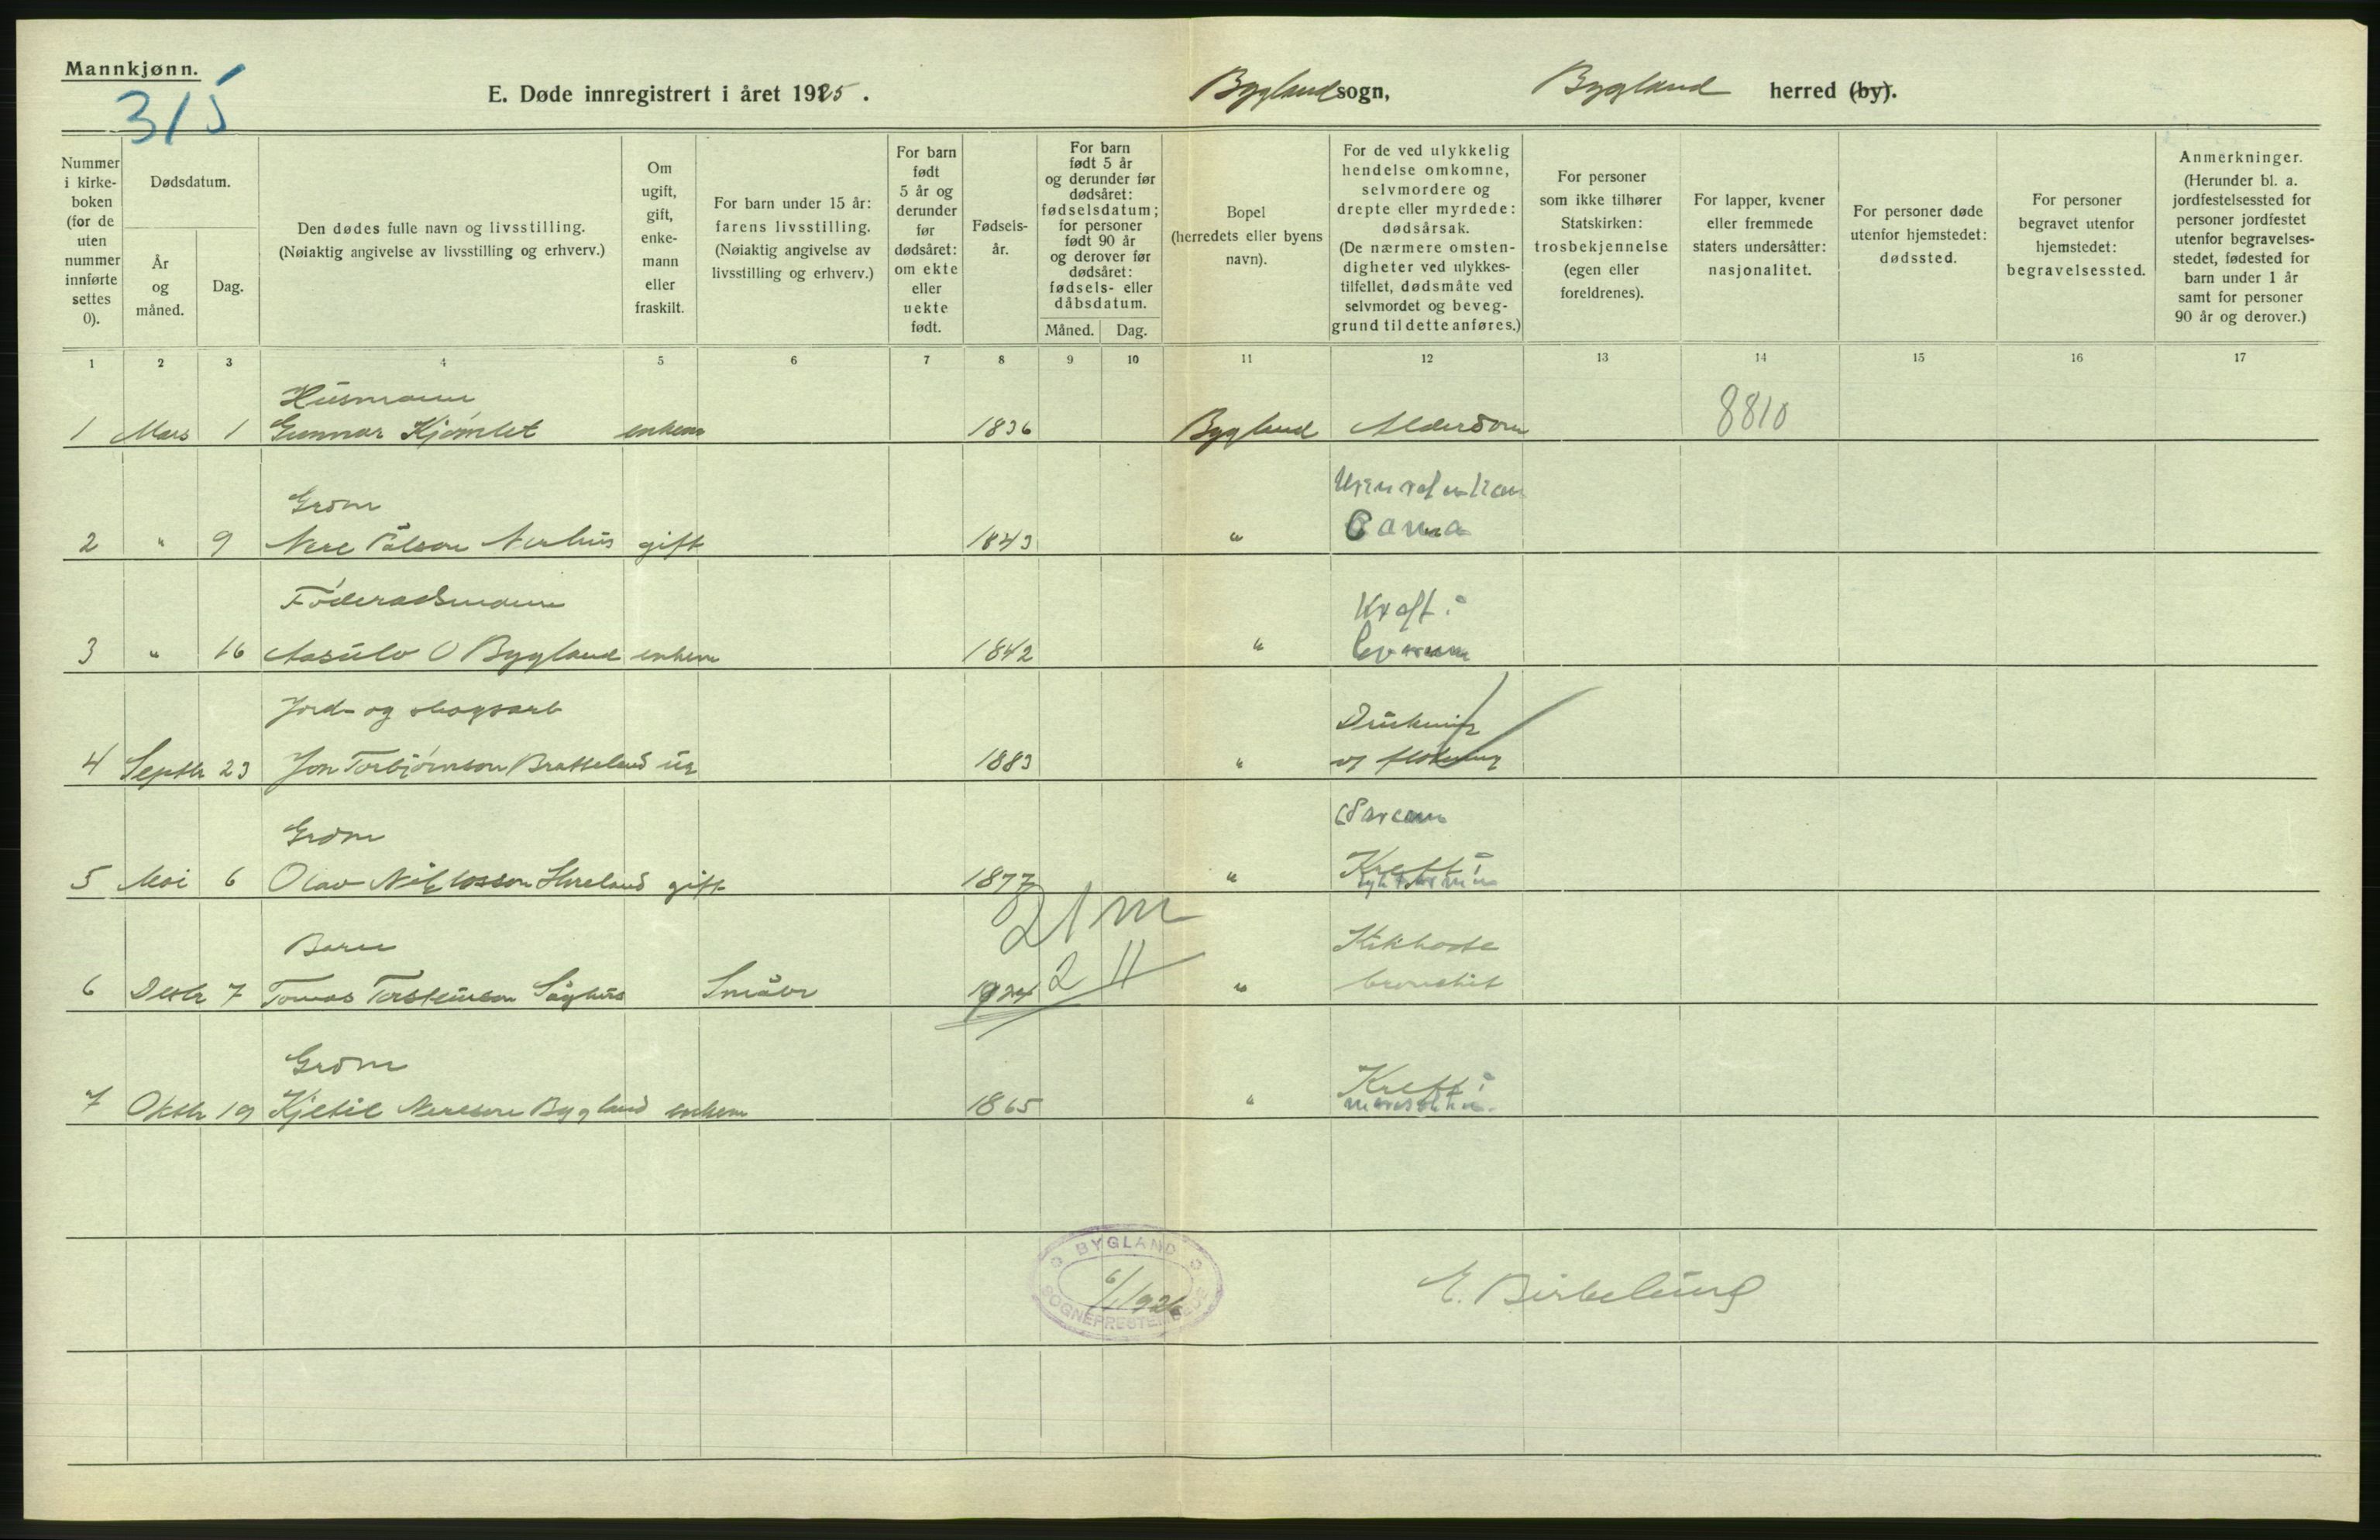 Mannkjønn.
315
E. Døde innregistrert i året 1925.
Bygland sogn,
Bygland herred (by).
Nummer i kirke- boken (for de uten nummer innførte settes 0).
Dødsdatum.
År og måned.
Dag.
Den dødes fulle navn og livsstilling.
(Nøiaktig angivelse av livsstilling og erhverv.)
Om ugift, gift, enke- mann eller fraskilt.
For barn under 15 år: farens livsstilling. (Nøiaktig angivelse av livsstilling og erhverv.)
For barn født 5 år og derunder før dødsåret: om ekte eller uekte født.
Fødsels- år.
For barn født 5 år og derunder før dødsåret: fødselsdatum; for personer født 90 år og derover før dødsåret: fødsels- eller dåbsdatum.
Måned. Dag.
Bopel (herredets eller byens navn).
For de ved ulykkelig hendelse omkomne, selvmordere og drepte eller myrdede: dødsårsak. (De nærmere omsten- digheter ved ulykkes- tilfellet, dødsmåte ved selvmordet og beveg- grund til dette anføres.)
For personer som ikke tilhører Statskirken: trosbekjennelse (egen eller foreldrenes).
For lapper, kvener eller fremmede staters undersåtter: nasjonalitet.
For personer døde utenfor hjemstedet: dødssted.
For personer begravet utenfor hjemstedet: begravelsessted.
Anmerkninger. (Herunder bl. a. jordfestelsessted for personer jordfestet utenfor begravelses- stedet, fødested for barn under 1 år samt for personer 90 år og derover.)
1 2 3 4 5 6 7 8 9 10 11 12 13 14 15 16 17
Husmann
1 Mars 1 Gunnar Kjømlet enkem 1836 Bygland Alderdom 8810
Grdm
2 " 9 Nere Pålson Nerhus gift 1843 "
Føderådsmann
Kreft i
3 " 16 Aasulv O Bygland enkem 1842 "
Jord- og skogsarb
Drukning
4 Septbr 23 Jon Torbjørnson Bratteland ug 1883 " v/ fløtning
Grdm
Sarcom
5 Mai 6 Olav Nilsson Horeland gift 1877 " Kreft i
21 m
Barn
Kikhoste
6 Desbr 7 Tomas Torsteinson Såghus Småbr 1924 2 11 " bronchit
Grdm
7 Oktbr 19 Kjetil Nereson Bygland enkem 1865 " Kreft i
BYGLAND SOGNEPRESTEMBEDE
6/1 1926
E. Birkelund